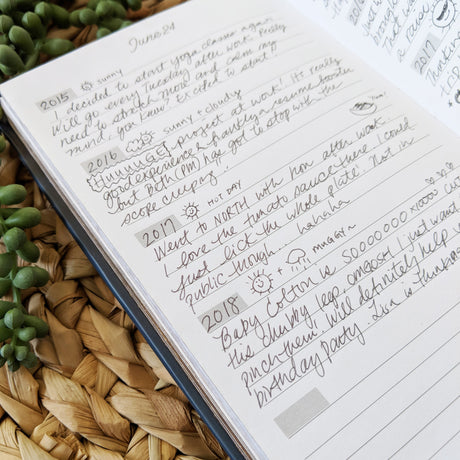 June 24
2015 sunny
I decided to start yoga classes again
Will go every Tuesday after work. Really
need to stretch more and calm my
mind, you know? Excited to start!
2016 sunny + cloudy
Huuuuuge project at work! It's really
good experience & frankly a resume booster
but Beth (PM) has got to stop with the
scope creeping
2017 HOT DAY
Went to NORTH with hon after work.
I love the tomato sauce there I could
just lick the whole plate. Not in
public though... hahaha
2018 + muggy
Baby Colton is 50,000,000 x1000 cut
His chunky legs omgosh I just want
pinch them! Will definitely help
birthday party. is thinking
2017
Thinking